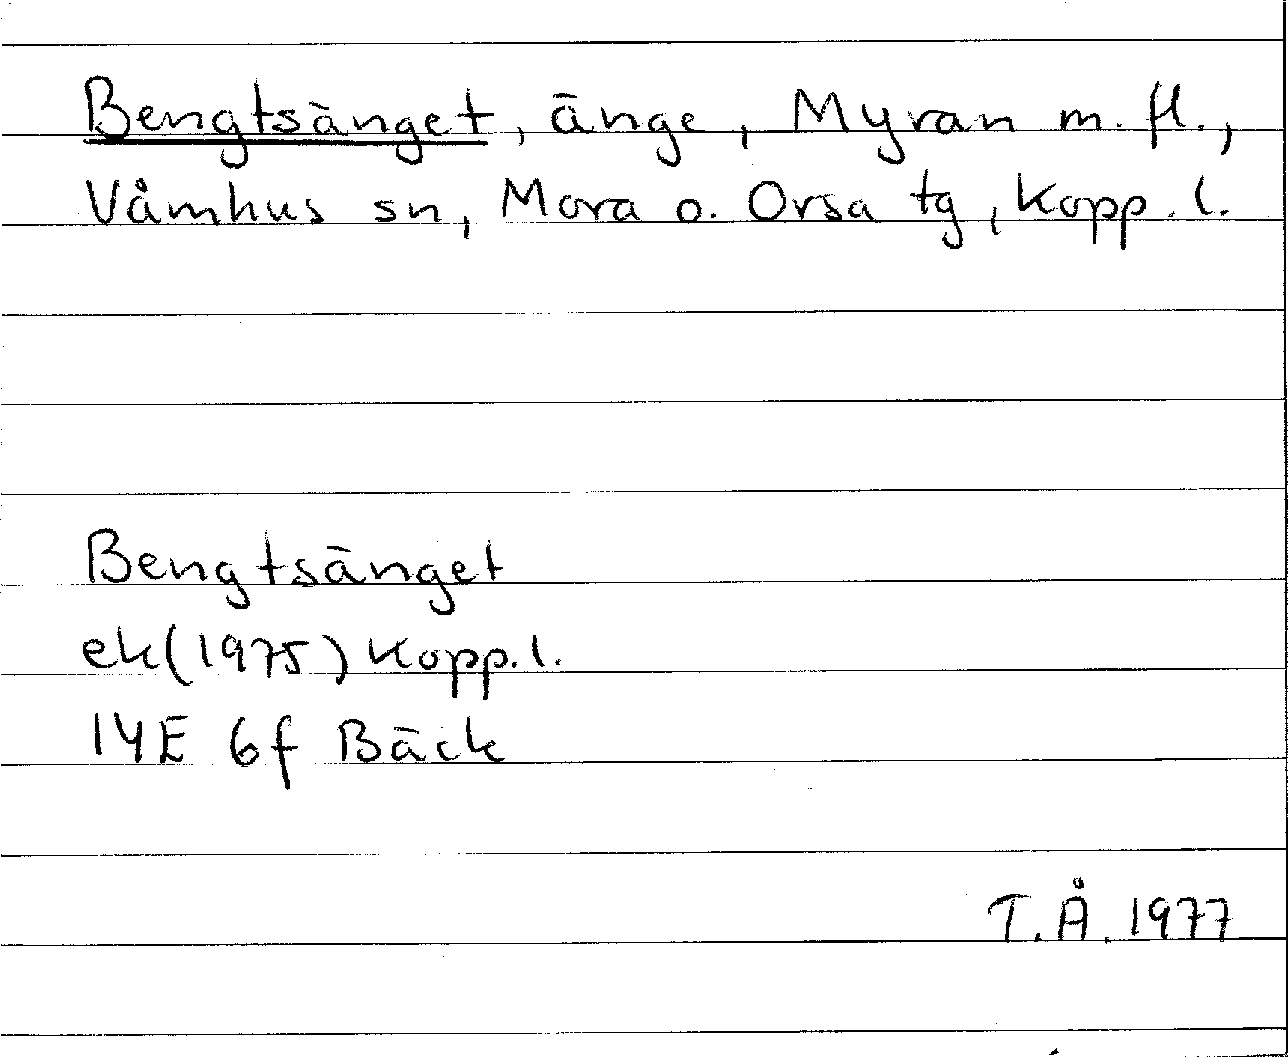 Bengtsänget, änge, Myran m. fl.,
Våmhus sn, Mora o. Orsa tg, Kopp. l.
Bengtsänget
ek(1975) Kopp. l.
14E 6f Bäck
T.Å. 1977